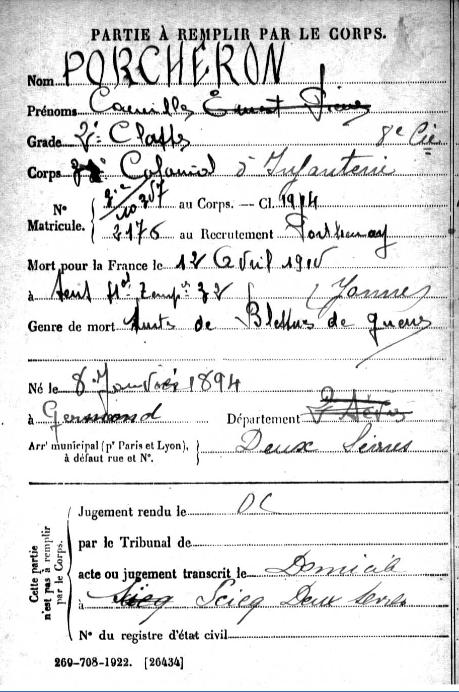 PARTIE À REMPLIR PAR LE CORPS.
Nom PORCHERON
Prénoms Camille Ernest Pierre
Grade 2e Classe 8e Cie
Corps Colonial d'Infanterie
N° Matricule. au Corps. — Cl. 1914
2176 au Recrutement Parthenay
Mort pour la France le 12 Avril 1915
à
Genre de mort Suites de Blessures de guerre
Né le 8 Janvier 1894
à Germond Département
Arrt municipal (pr Paris et Lyon), à défaut rue et N°. Deux Sèvres
Cette partie n'est pas à remplir par le Corps.
Jugement rendu le
par le Tribunal de
acte ou jugement transcrit le Domicile
à Sciecq Deux Sèvres
N° du registre d'état civil
269-708-1922. [26434]